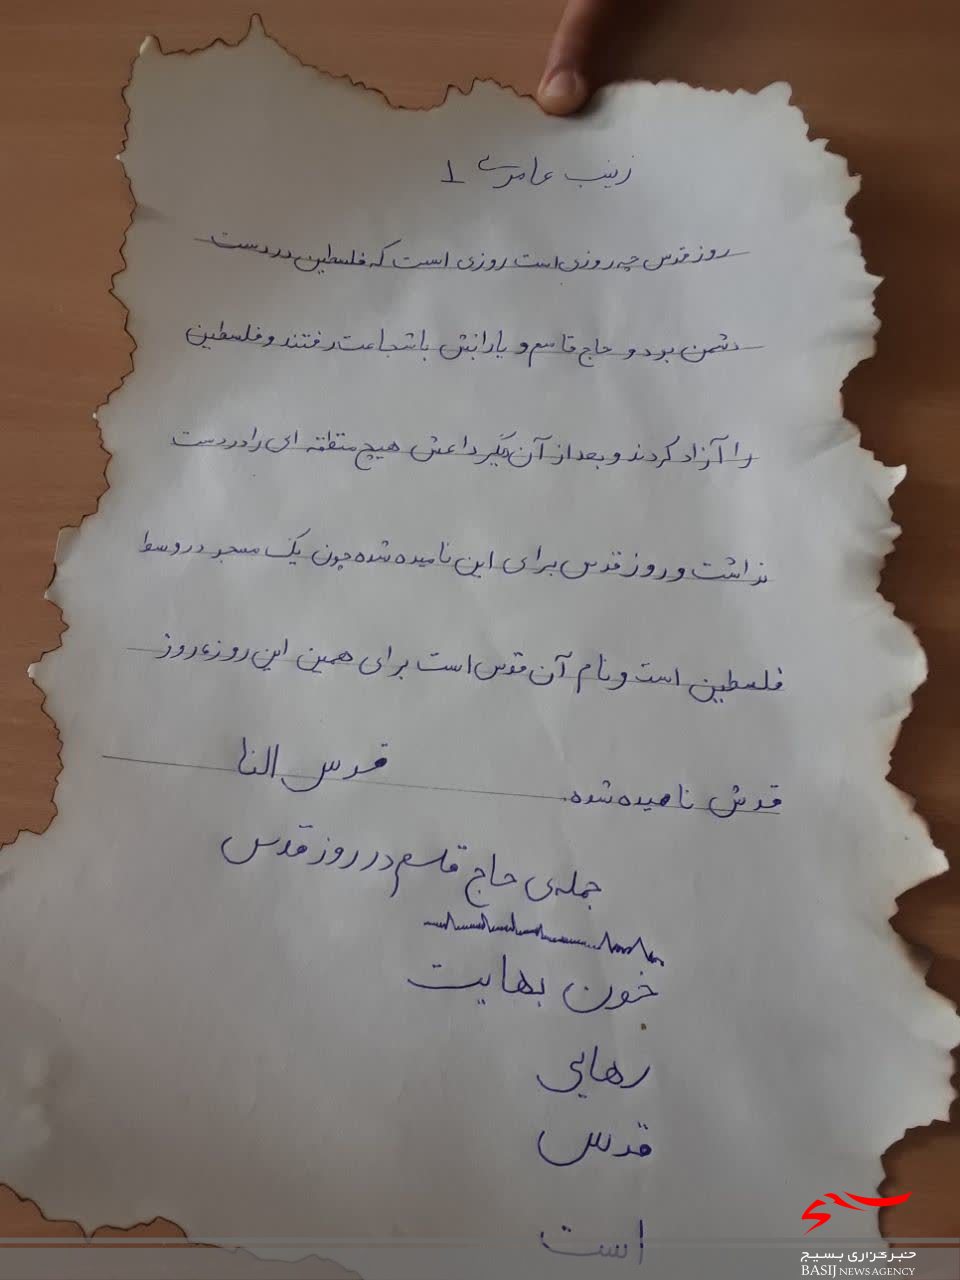 زینب عامری 1
روز قدس چه روزی است روزی است که فلسطین در دست
دشمن بود و حاج قاسم و یارانش با شجاعت رفتند و فلسطین
را آزاد کردند و بعد از آن دیگر داعش هیچ منطقه ای را در دست
نداشت و روز قدس برای این نامیده شده چون یک مسجد در وسط
فلسطین است و نام آن قدس است برای همین این روز، روز
قدس نامیده شده.
قدس النا
جمله‌ی حاج قاسم در روز قدس
خون بهایت
رهایی
قدس
است
خبرگزاری بسیج
BASIJ NEWS AGENCY